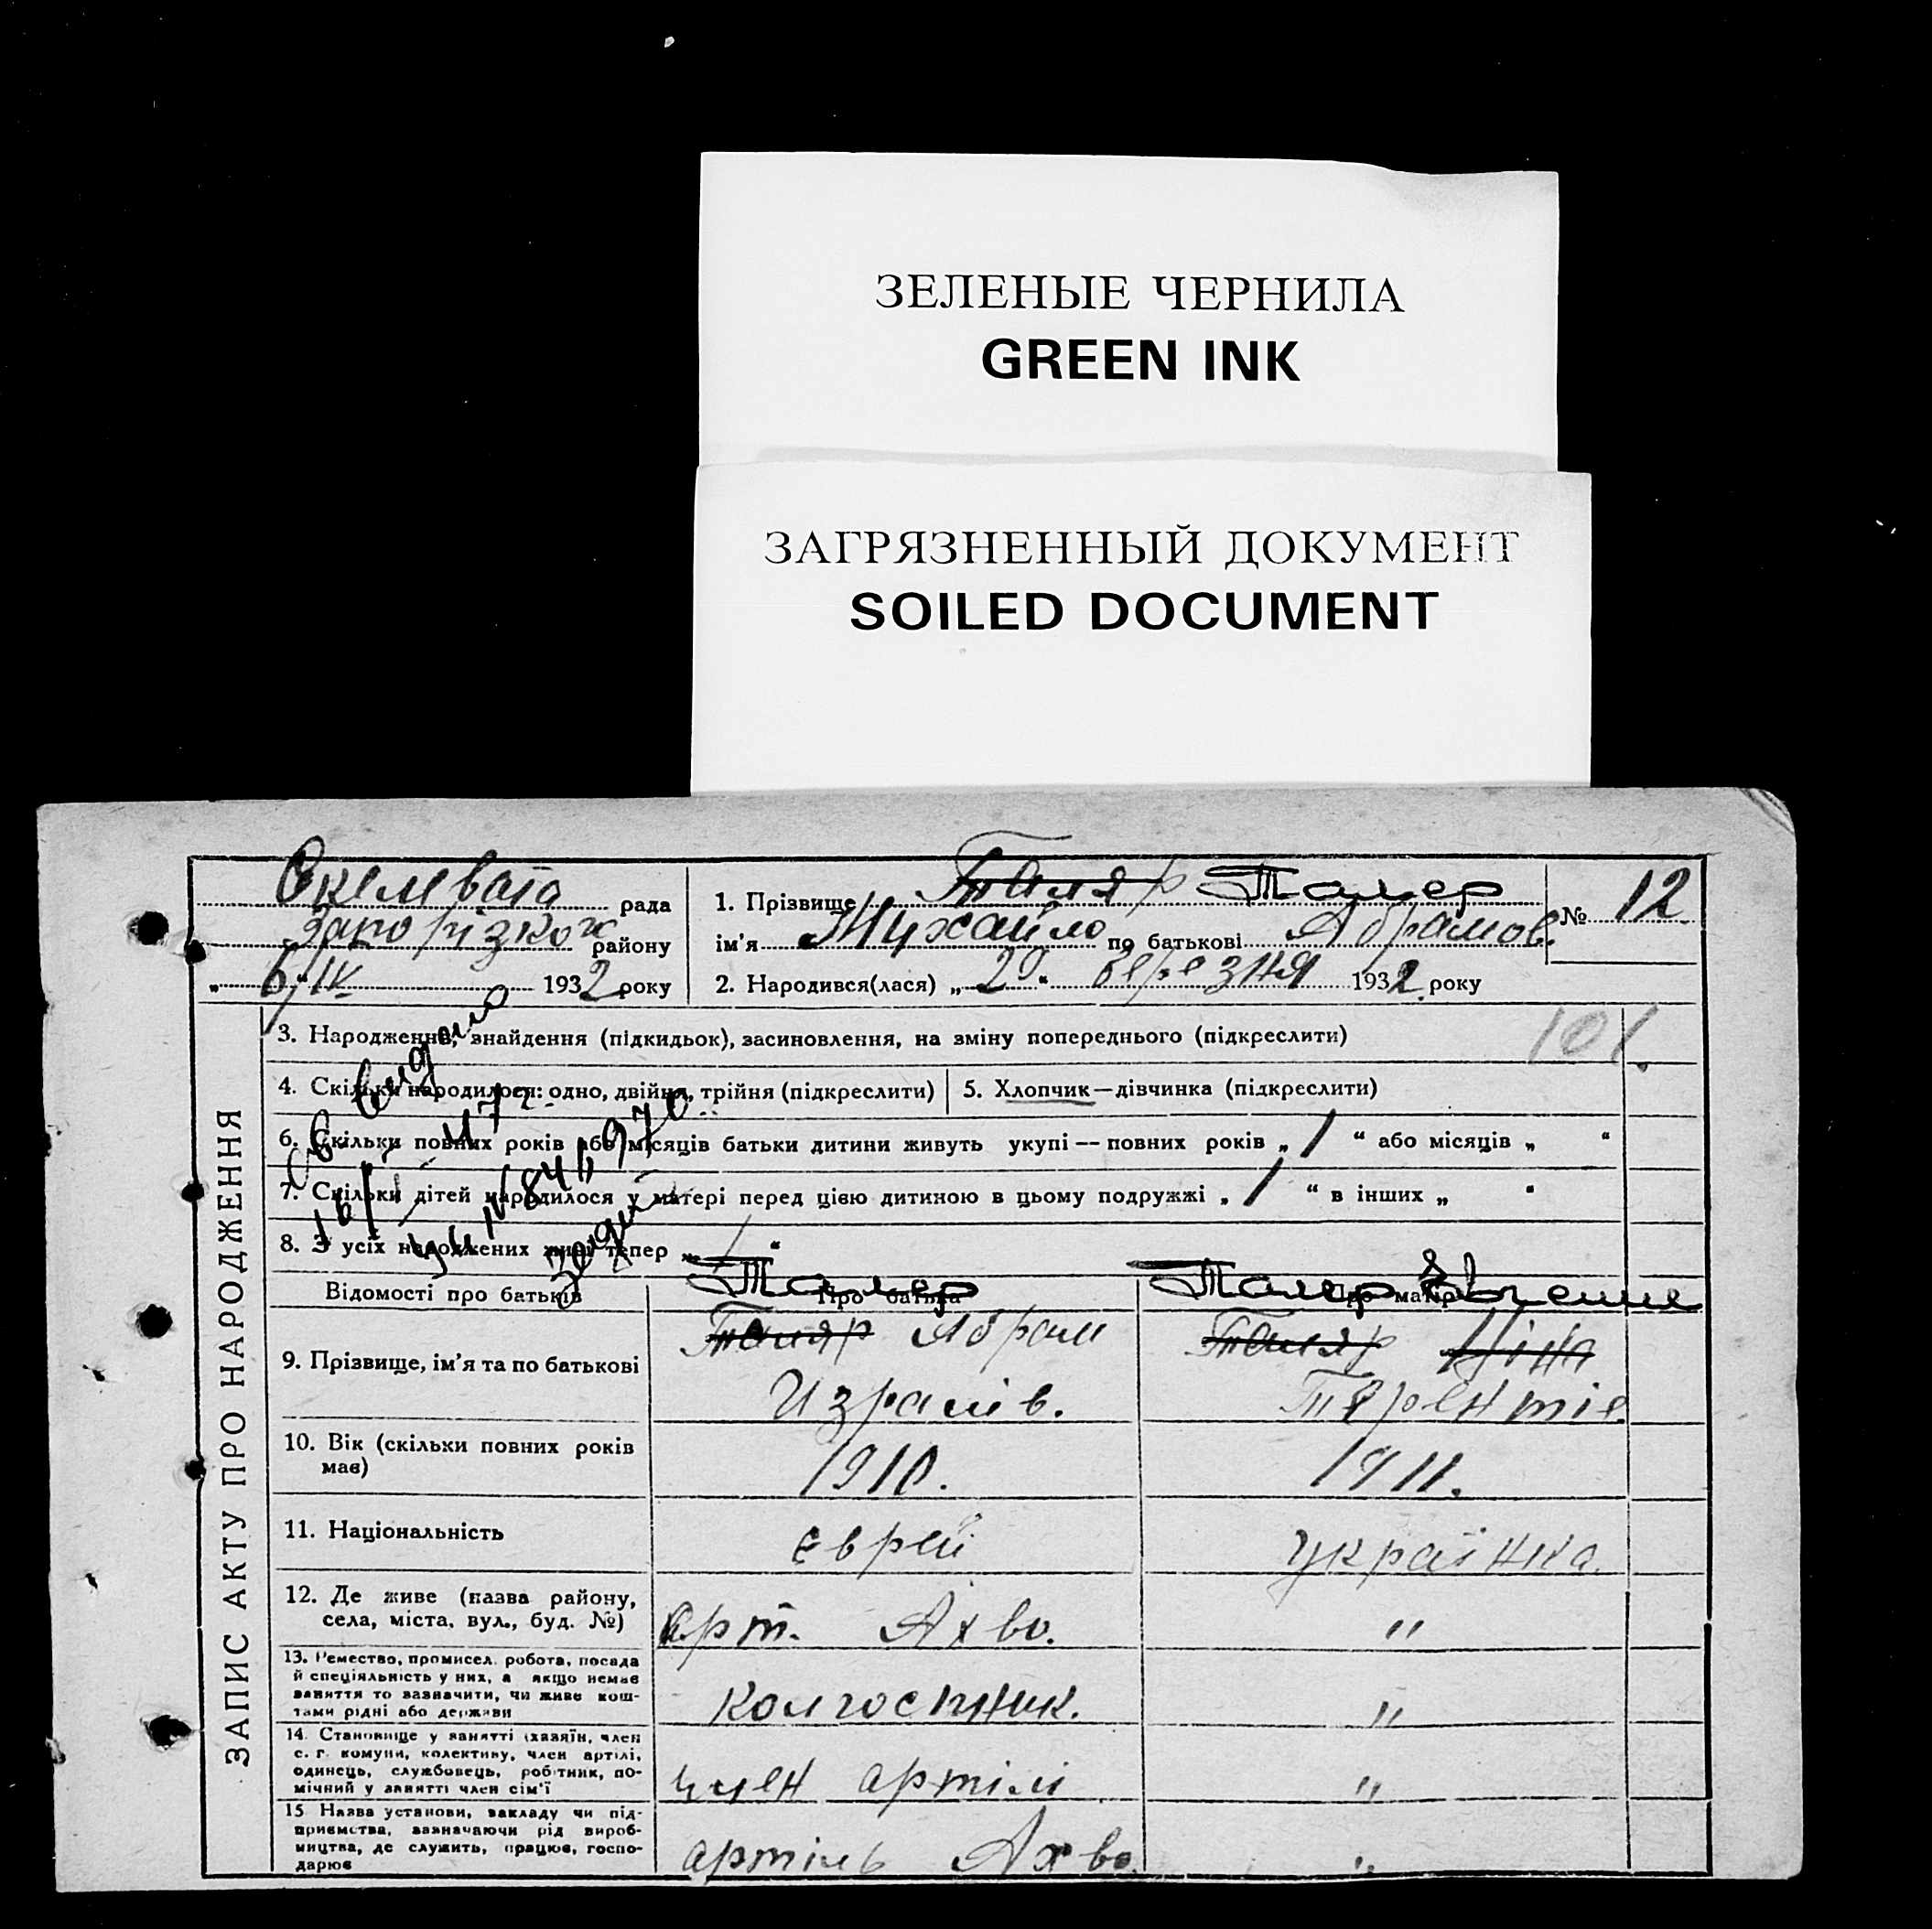 ЗЕЛЕНЫЕ ЧЕРНИЛА
GREEN INK
ЗАГРЯЗНЕННЫЙ ДОКУМЕНТ
SOILED DOCUMENT
ЗАПИС АКТУ ПРО НАРОДЖЕННЯ
Скелевата рада
району
6/IV 1932 року
1. Прізвище Таляр Талер
ім'я Михайло по батькові Абрамов.
№ 12
2. Народився(лася) „20“ березня 1932 року
3. Народження, знайдення (підкидьок), засиновлення, на зміну попереднього (підкреслити)
101
4. Скільки народилося: одно, двійня, трійня (підкреслити)
5. Хлопчик—дівчинка (підкреслити)
6. Скільки повних років або місяців батьки дитини живуть укупі — повних років „1“ або місяців „ “
7. Скільки дітей народилося у матері перед цією дитиною в цьому подружжі „1“ в інших „ “
8. З усіх народжених живі тепер „1“
Відомості про батьків
Про батька
Про матір
Талер
Талер
9. Прізвище, ім'я та по батькові
Таляр Абрам
Таляр Ніна
Ізралів.
Терентіє
10. Вік (скільки повних років має)
1910.
1911.
11. Національність
єврей
українка.
12. Де живе (назва району,
села, міста, вул., буд. №)
арт. Ахво.
"
13. Ремество, промисел, робота, посада
й спеціяльність у них, а якщо немає
заняття то зазначити, чи живе кош-
тами рідні або держави
колгоспник.
"
14. Становище у занятті (хазяїн, член
с. г. комуни, колективу, член артілі,
одинець, службовець, робітник, по-
мічний у занятті член сім'ї
член артілі
"
15 Назва установи, закладу чи під-
приємства, зазначаючи рід вироб-
ництва, де служить, працює, госпо-
дарює
артіль Ахво.
"